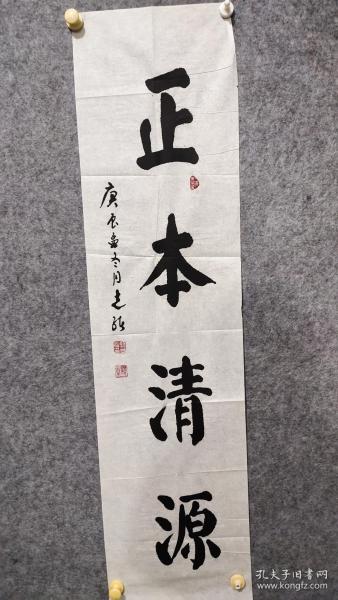 正本清源
庚辰年冬月志
孔夫子旧书网
www.kongfz.com